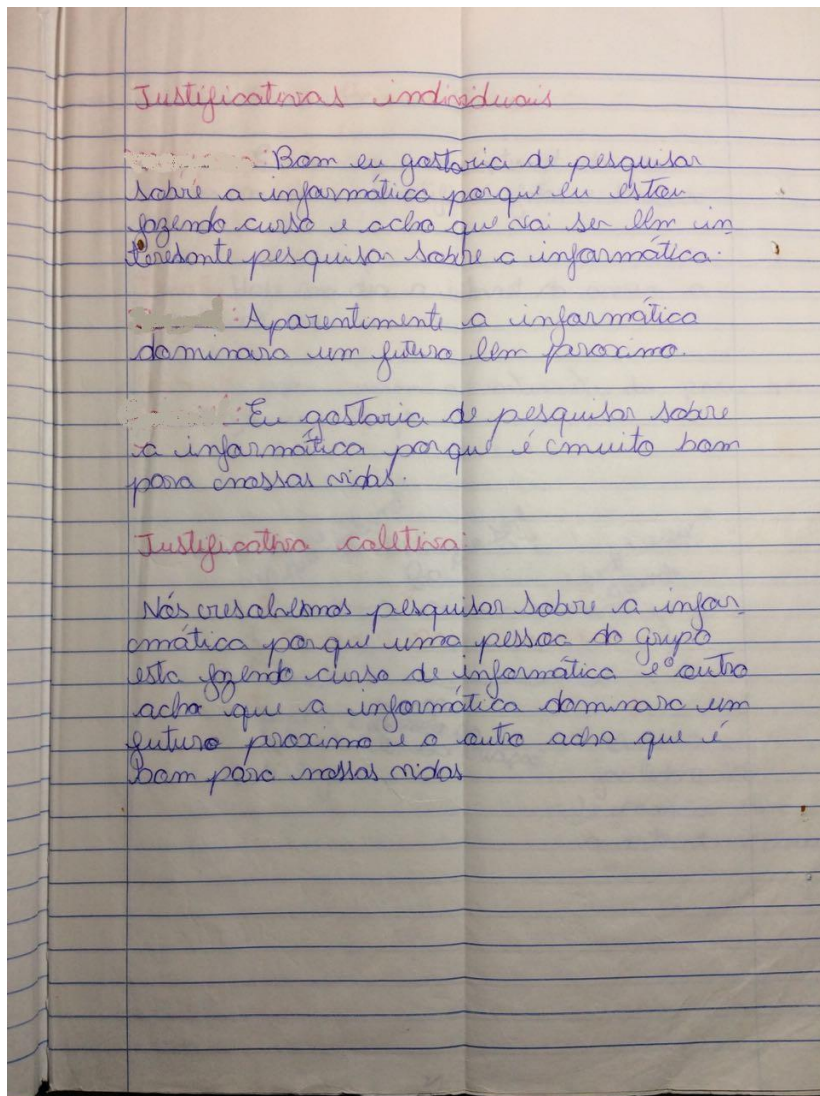 Justificativas individuais
: Bom eu gostaria de pesquisar
sobre a informática porque eu estou
fazendo curso e acho que vai ser bem in
teresante pesquisar sobre a informática.
: Aparentimente a informática
dominara um futuro bem proximo.
: Eu gostaria de pesquisar sobre
a informática porque é muito bom
para nossas vidas.
Justificativa coletiva:
Nós resolvemos pesquisar sobre a infor
mática porque uma pessoa do grupo
esta fazendo curso de informática e o outro
acha que a informática dominara um
futuro proximo e o outro acha que é
bom para nossas vidas